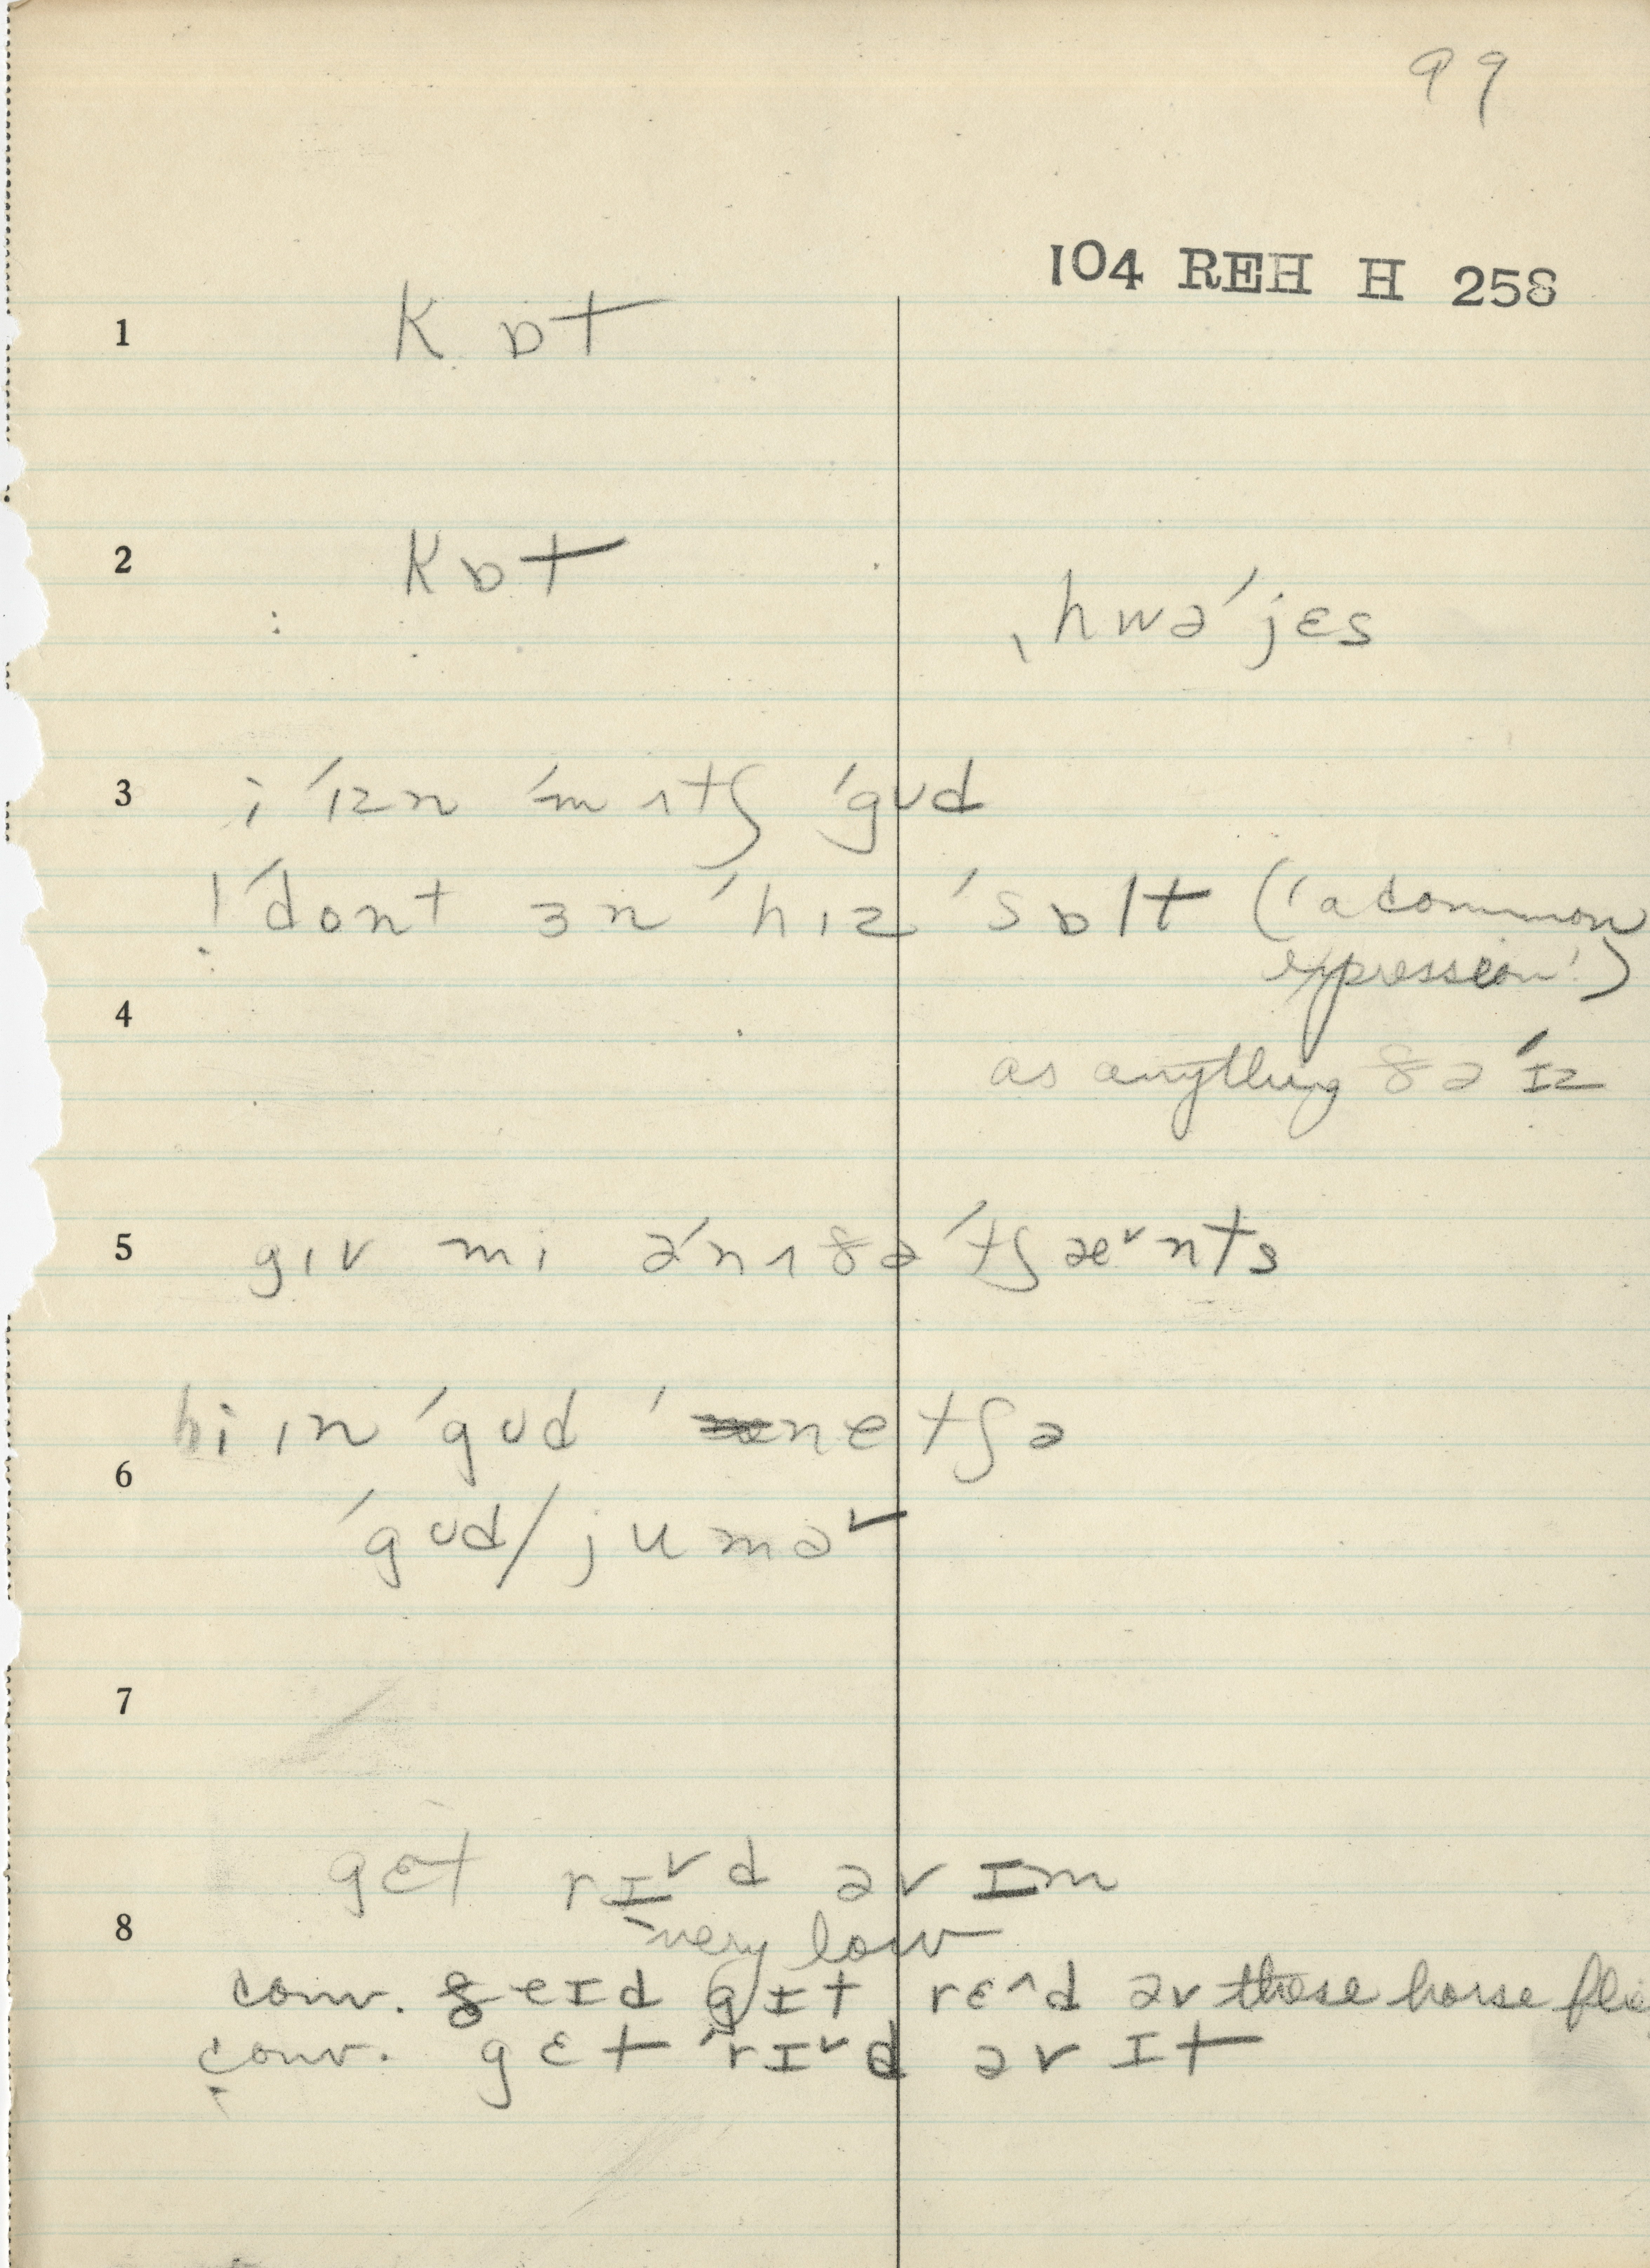 99
104 REH H 258
1 kɒt
2 kɒt
ˌhwə ˈjɛs
3 i ˈɪzn ˈmɪtʃ ˈgʊd
! ˈdont ɜn ˈhɪz ˈsɒlt ('a common
expression')
4
as anything ðə ˈɪz
5 gɪv mi əˈnɪðə ˈtʃæ˅nts
hi ɪn ˈgʊd ˈnetʃə
6
ˈgʊd / jumə˅
7
gɛt rɪ˅d əv ɪm
8 very low
conv. ðeɪd gɪt rɛ^d əv these horse flie
conv. gɛt ˈrɪ˅d əv ɪt